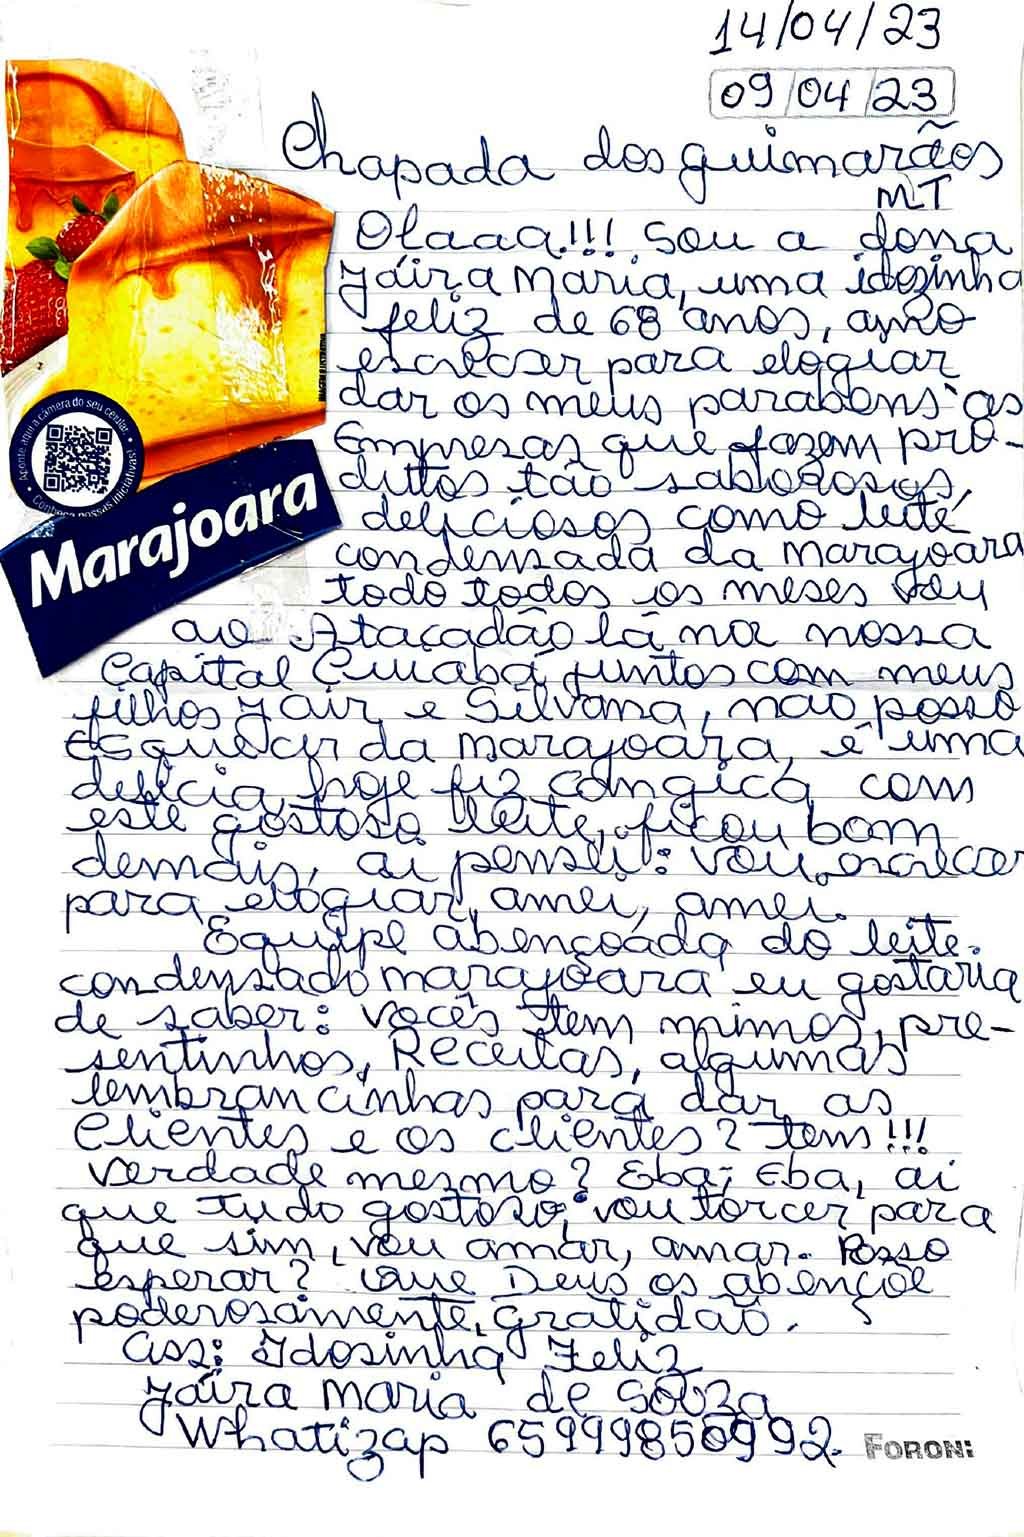 14/04/23
09/04/23
Chapada dos guimarãos
MT
Olaaa!!! Sou a dona
Jáira Maria, uma idozinha
feliz de 68 anos, amo
escrecer para elogiar
dar os meus parabens as
Empresas que fazem pro-
duttos tão saborosos,
deliciosos como leite
condensada da marajoara
todo todos os meses vou
ao Atacadão lá na nossa
Capital Cuiabá juntos com meus
filhos Jair e Silvana, não posso
esquecer da marajoara, é uma
delicia, hoje fiz cangica com
este gostoso leite, ficou bom
demais, ai pensei: vou escrecer
para elogiar, amei, amei.
Equipe abençoada do leite
condensado marajoara eu gostaria
de saber: vocês tem mimos, pre-
sentinhos, Receitas, algumas
lembrancinhas para dar as
Clientes e os clientes? tem!!!
verdade mesmo? Eba, Eba, ai
que tudo gostoso, vou torcer para
que sim, vou amar, amar. Posso
esperar? Que Deus os abençoe
poderosamente, gratidão.
ass: Idosinha Feliz
Jáira maria de Souza
Whatizap 65999850992.
FORONI
Aponte aqui a câmera do seu celular
Conheça nossas iniciativas!
Marajoara